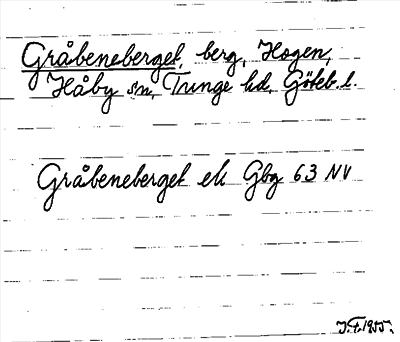 Gråbeneberget, berg, Hogen,
Håby sn, Tunge hd, Göteb. l.
Gråbeneberget ek Gbg 63 NV
1955.